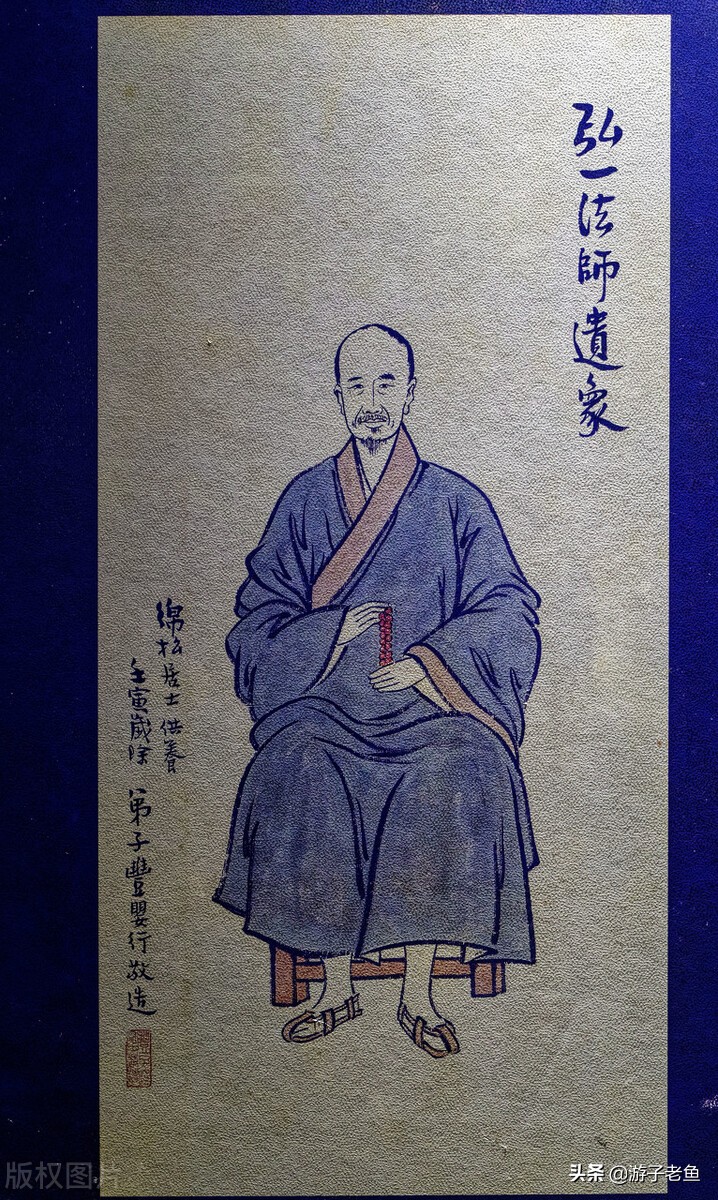 弘一法師遺象
綿松居士供養
壬寅歲除 弟子豐嬰行敬造
版权图片
头条 @游子老鱼